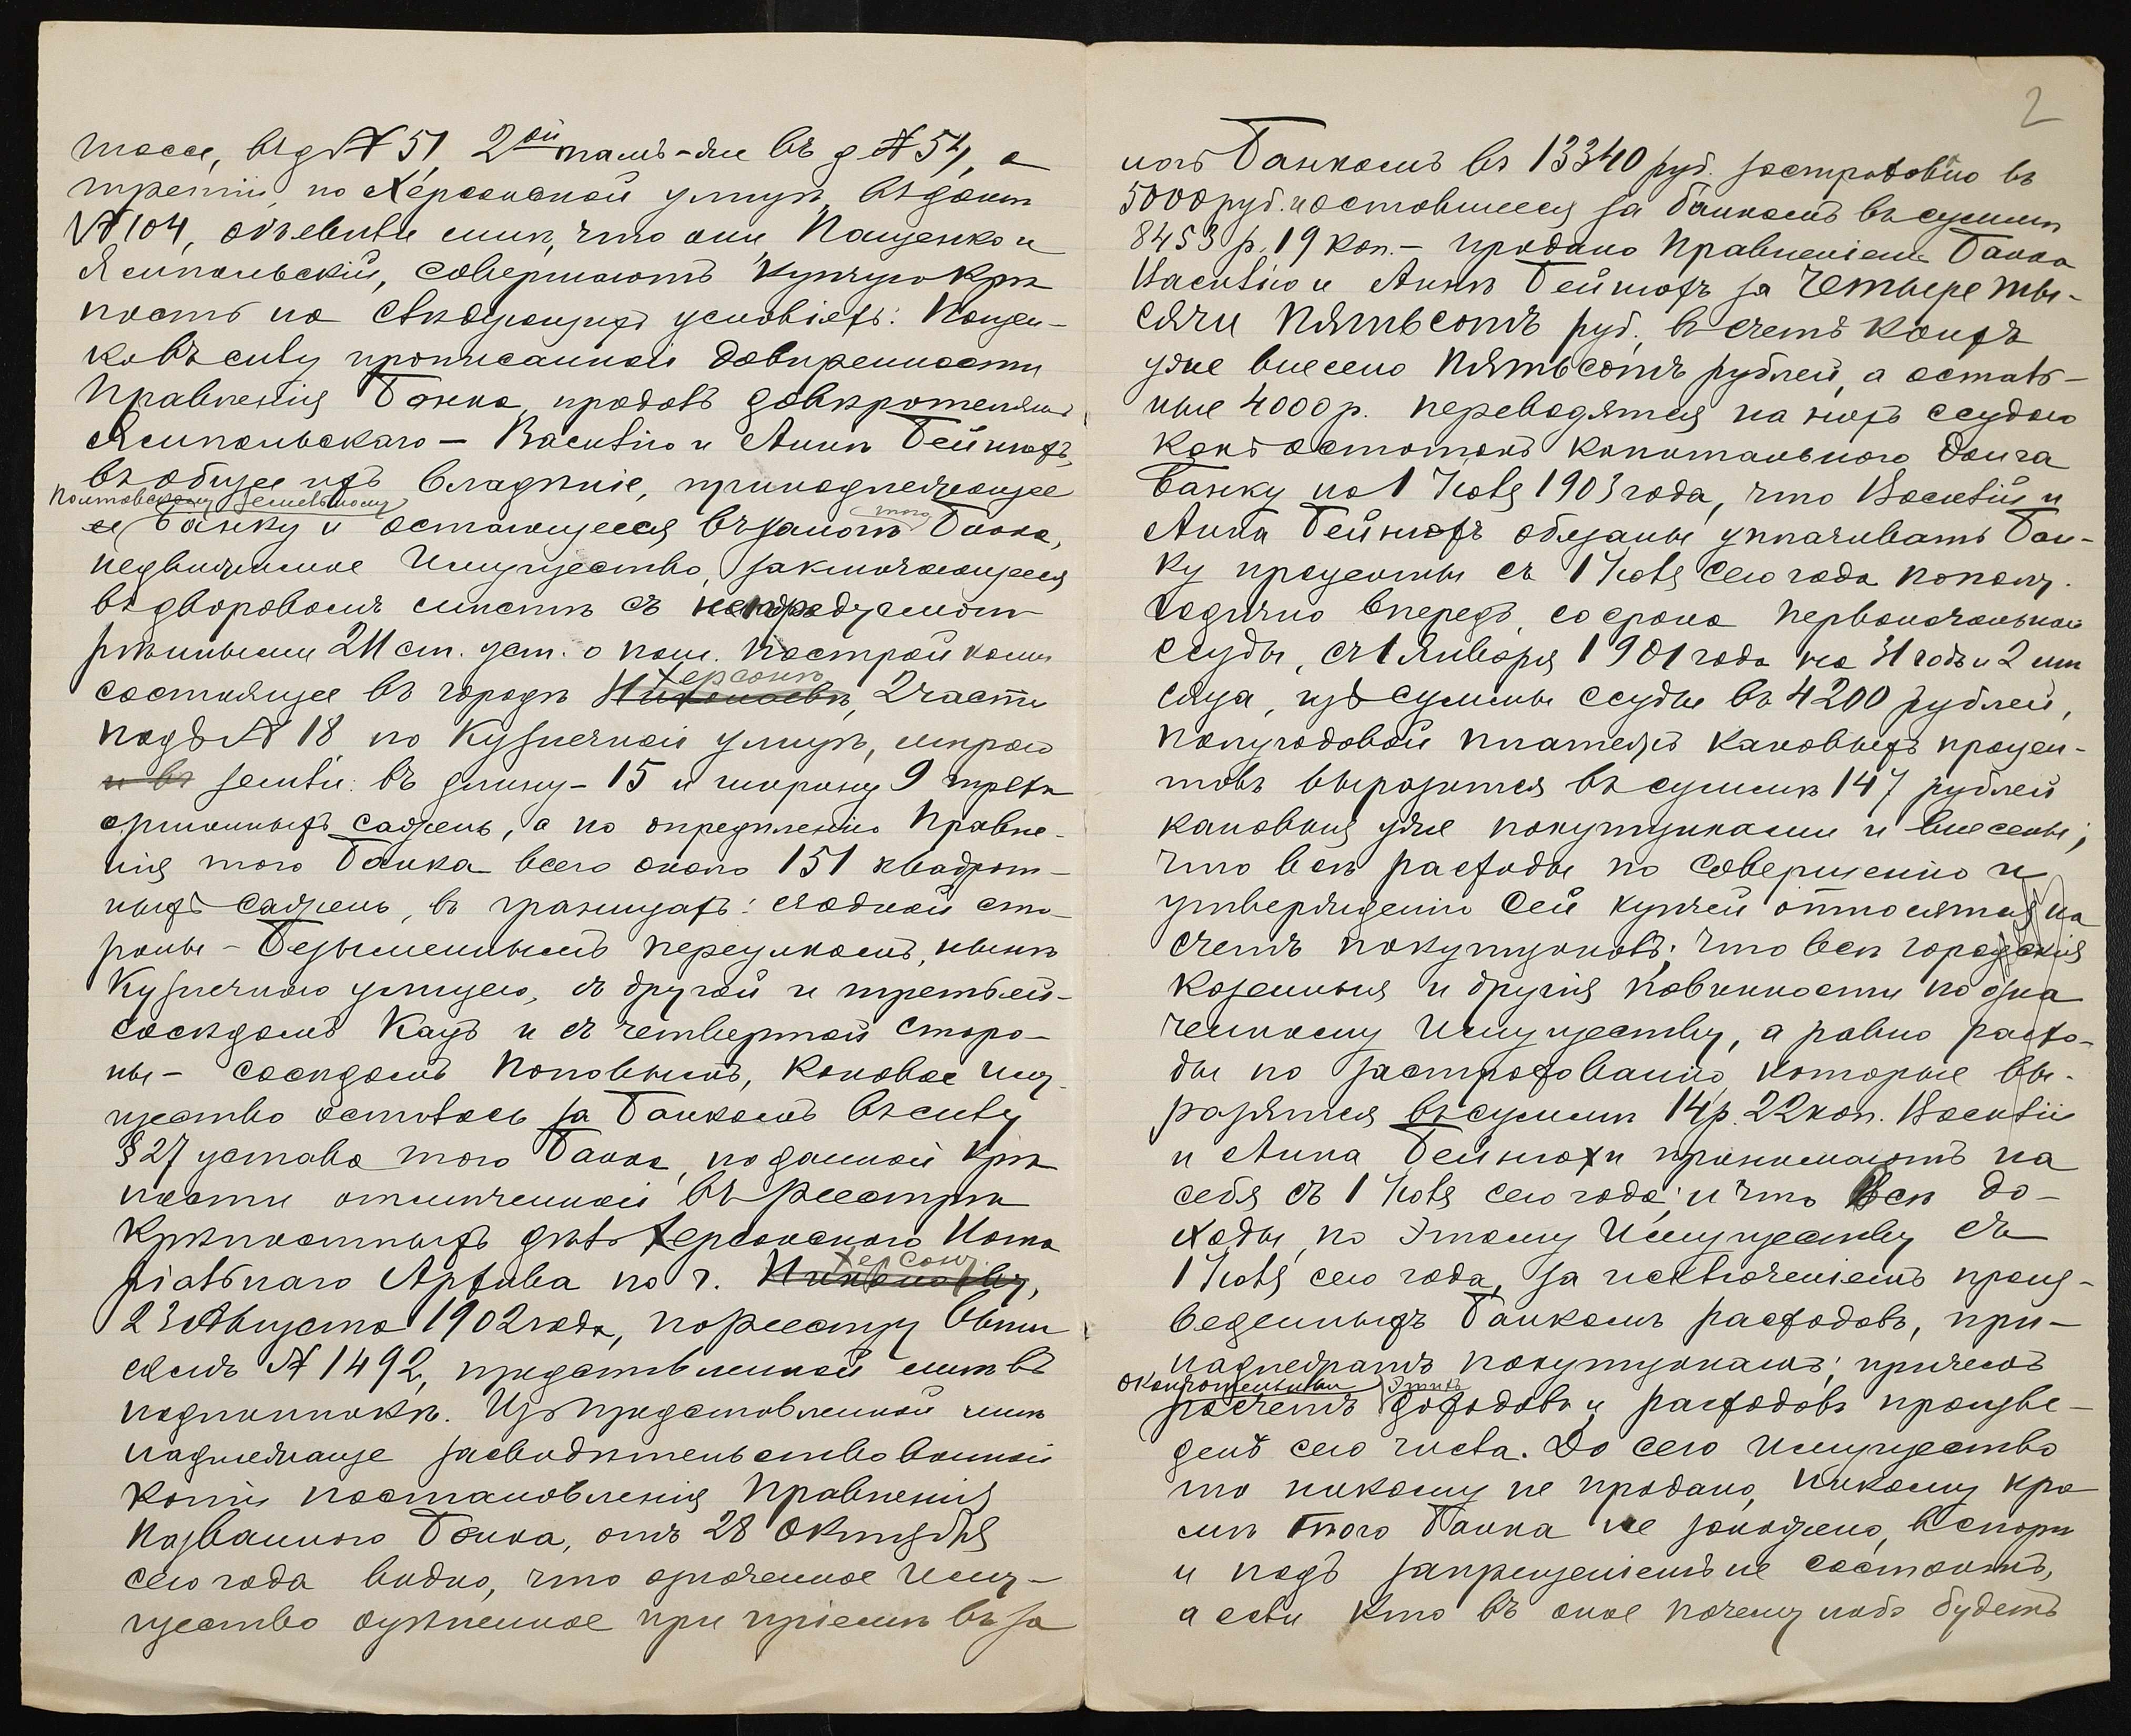 шоссе, въ д № 51, 2ой тамъ-же въ д № 54, а
третій, по Херсонской улицѣ, въ домѣ
№ 104, объявили мнѣ, что они Пащенко и
Ямпольскій, совершаютъ купчую крѣ
пость на слѣдующихъ условіяхъ: Пащен-
ко въ силу прописанной довѣренности
Правленія Банка, продалъ довѣрителямъ
Ямпольскаго — Василію и Аннѣ Бейнюхъ,
въ общее ихъ владѣніе, принадлежащее
Полтавскому Земельному
Банку и остающееся въ залогѣ
того
Банка,
недвижимое имущество, заключающееся
въ дворовомъ мѣстѣ съ непредусмот
рѣнными 211 ст. уст. о пош. постройками
Херсонѣ
состоящее въ городѣ Николаевѣ, 2 части
подъ № 18 по Кузнечной улицѣ, мѣрою
и въ земли: въ длину - 15 и ширину 9 трехъ
аршинныхъ сажень, а по опредѣленію Правле-
нія того Банка всего около 151 квадрат-
ныхъ сажень, въ границахъ: съ одной сто-
роны - Безыменнымъ переулкомъ, нынѣ
Кузнечною улицею, съ другой и третьей -
сосѣдомъ Кацъ и съ четвертой сторо-
ны - сосѣдомъ Поповымъ, каковое иму-
щество осталось за Банкомъ въ силу
§ 27 устава того Банка, по данной крѣ
пости отмѣченной въ реестрѣ
крѣпостныхъ дѣлъ Херсонскаго Нота
Херсону
ріальнаго Архива по г. Николаеву,
23 Августа 1902 года, по реестру
№ 1492, представленной мнѣ въ
подлинникѣ. Изъ представленной мнѣ
надлежаще засвидѣтельствованной
копіи постановленія Правленія
названнаго Банка, отъ 28 Октября
сего года видно, что означенное иму-
щество оцѣненное при пріемѣ въ за
2
логъ Банкомъ въ 13340 руб. застраховано въ
5000 руб. и оставшееся за банкомъ въ суммѣ
8453 р. 19 коп. - продано Правленіемъ Банка
Василію и Аннѣ Бейнюхъ за Четыре ты-
сячи пятьсотъ руб., въ счетъ коихъ
уже внесено пятьсотъ рублей, а осталь-
ные 4000 р. переводятся на нихъ ссудою
какъ остатокъ капитальнаго долга
Банку по 1 Іюля 1903 года, что Василій и
Анна Бейнюхъ обязаны уплачивать Бан-
ку проценты съ 1 Іюля сего года по полу-
годично впередъ, со срока первоначальной
ссуды, съ 1 Января 1901 года на 31 годъ и 2 мѣ
сяца, изъ суммы ссуды въ 4200 рублей,
полугодовой платежъ каковыхъ процен-
товъ выразится въ суммѣ 147 рублей
каковыя уже покупщиками и внесены;
что всѣ расходы по совершенію и
утвержденію сей купчей относятся на
счетъ покупщиковъ; что всѣ городскія
казенныя и другія повинности по озна
ченному имуществу, а равно расхо-
ды по застрахованію, которые вы-
разятся въ суммѣ 14 р. 22 коп. Василій
и Анна Бейнюхи принимаютъ на
себя съ 1 Іюля сего года; и что всѣ до-
ходы, по этому имуществу съ
1 Іюля сего года, за исключеніемъ произ-
веденныхъ Банкомъ расходовъ, при-
надлежатъ покупщикамъ; причемъ
окончательный этихъ
расчетъ доходовъ и расходовъ произве-
денъ сего числа. До сего имущество
то никому не продано, никому кро
мѣ того Банка не заложено, въ спорѣ
и подъ запрещеніемъ не состоитъ,
а если кто въ оное почему либо будетъ